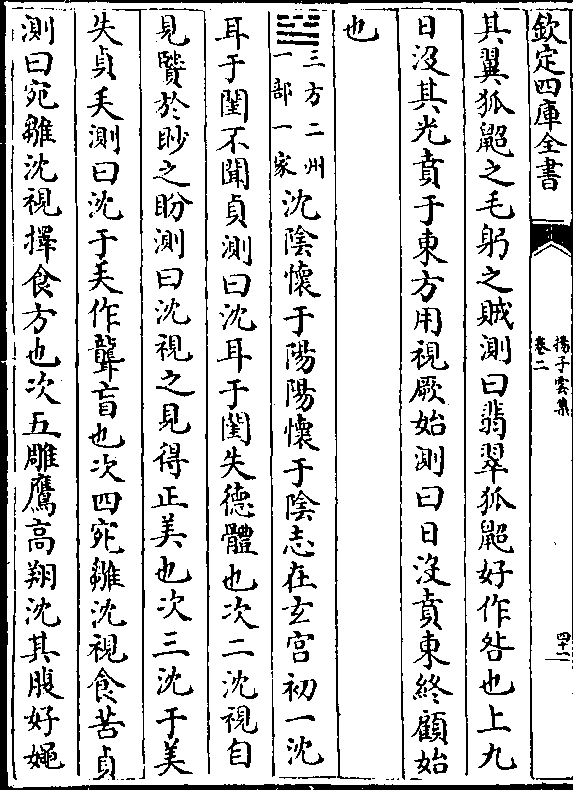 欽定四庫全書
揚子雲集
卷二
四十一
其翼狐鼦之毛躬之賊測曰翡翠狐鼦好作咎也上九
日没其光賁于東方用視厥始測曰日没賁東終顧始
也
三方二州
一部一家
沈陰懷于陽陽懷于陰志在玄宫初一沈
耳于閨不聞貞測曰沈耳于閨失德體也次二沈視自
見賢於眇之盼測曰沈視之見得正美也次三沈于美
失貞矢測曰沈于美作聾盲也次四宛雛沈視食苦貞
測曰宛雛沈視擇食方也次五雕鷹高翔沈其腹好䋲